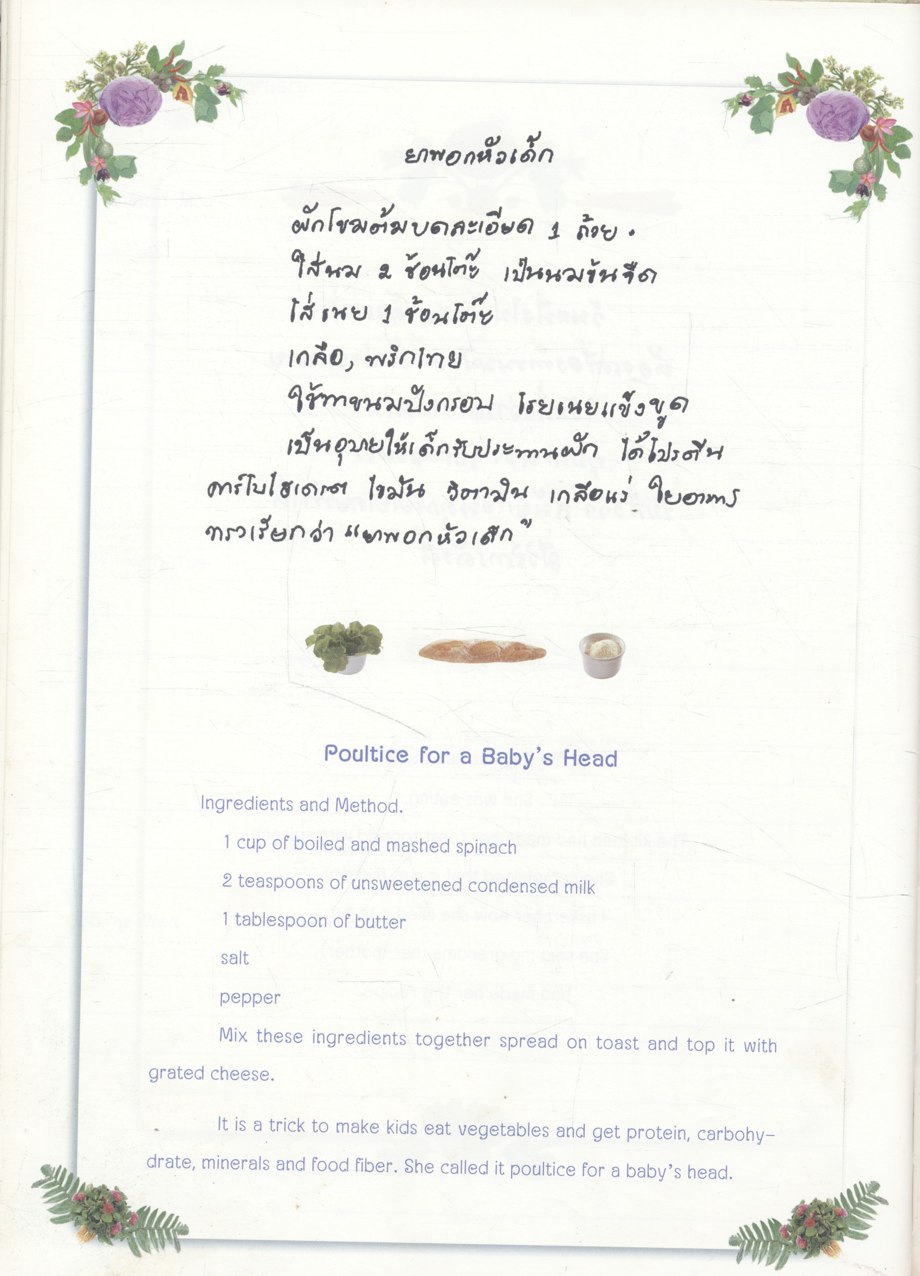 ยาพอกหัวเด็ก
ผักโขมต้มบดละเอียด 1 ถ้วย.
ใส่นม 2 ช้อนโต๊ะ เป็นนมข้นจืด
ใส่เนย 1 ช้อนโต๊ะ
เกลือ, พริกไทย
ใช้ทาขนมปังกรอบ โรยเนยแข็งขูด
เป็นอุบายให้เด็กรับประทานผัก ได้โปรตีน
คาร์โบไฮเดรต ไขมัน วิตามิน เกลือแร่ ใยอาหาร
เรียกว่า "ยาพอกหัวเด็ก"
Poultice for a Baby's Head
Ingredients and Method.
1 cup of boiled and mashed spinach
2 teaspoons of unsweetened condensed milk
1 tablespoon of butter
salt
pepper
Mix these ingredients together spread on toast and top it with
grated cheese.
It is a trick to make kids eat vegetables and get protein, carbohy-
drate, minerals and food fiber. She called it poultice for a baby's head.